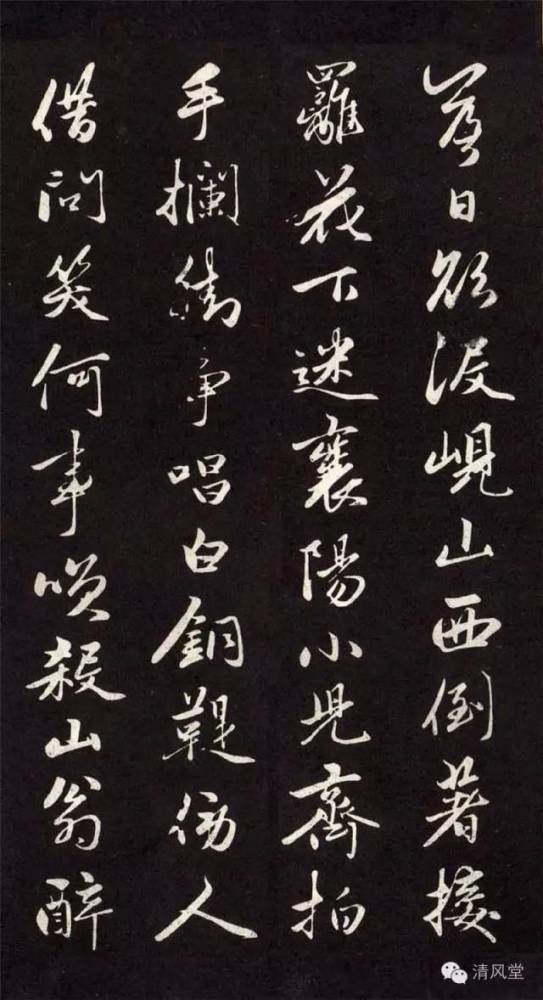 落日欲没峴山西倒著接
䍦花下迷襄陽小兒齊拍
手攔街争唱白銅鞮傍人
借問笑何事咲殺山翁醉
清风堂